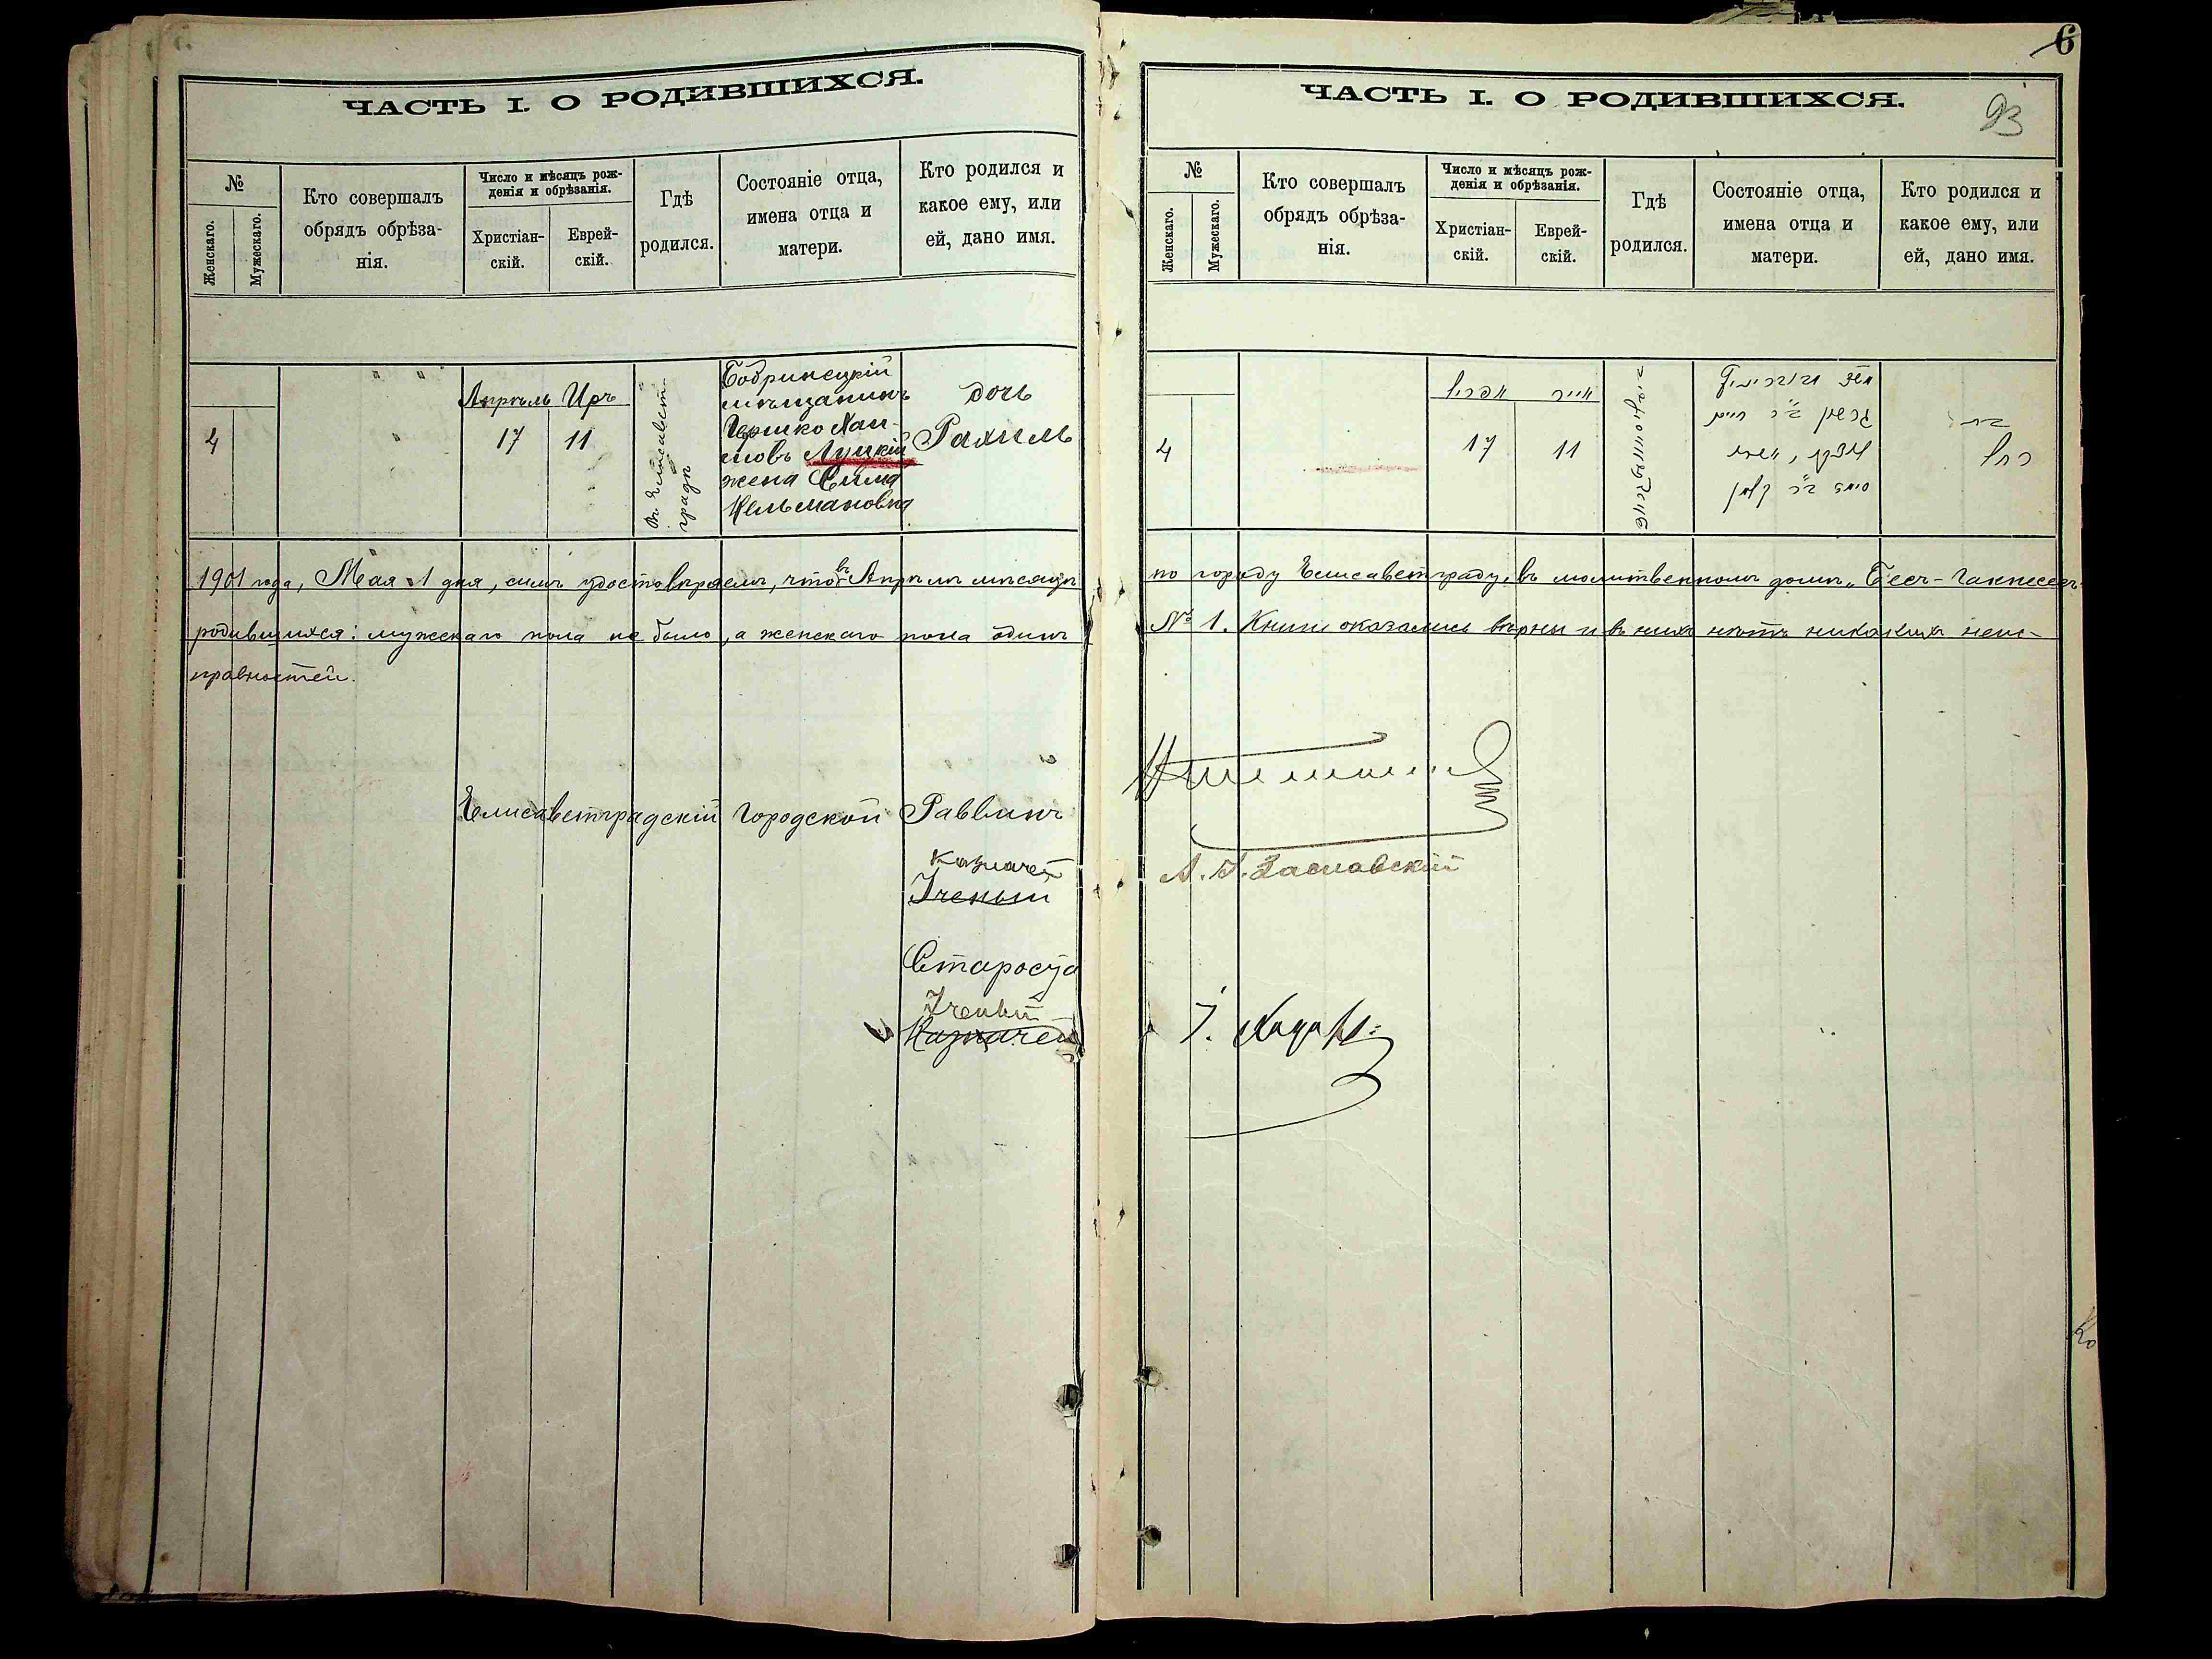 ЧАСТЬ I. О РОДИВШИХСЯ.
№
Женскаго.
Мужескаго.
Кто совершалъ
обрядъ обрѣза-
нія.
Число и мѣсяцъ рож-
денія и обрѣзанія.
Христіан-
скій.
Еврей-
скій.
Гдѣ
родился.
Состояніе отца,
имена отца и
матери.
Кто родился и
какое ему, или
ей, дано имя.
4
" "
"
Апрѣль Иръ
17 11
Въ Елисавет-
градѣ
Бобринецкій
мѣщанинъ
Гершко Хаи-
мовъ Луцкій
жена Сима
Кельмановна
дочь
Рахиль
1901 года, Мая 1 дня, симъ удостовѣряемъ, что въ Апрѣлѣ мѣсяцѣ
родившихся: мужескаго пола не было, а женскаго пола одинъ
правностей.
Елисаветградскій Городской Раввинъ
Казначей
Ученый
Староста
Ученый
Казначей
6
93
ЧАСТЬ I. О РОДИВШИХСЯ.
№
Женскаго.
Мужескаго.
Кто совершалъ
обрядъ обрѣза-
нія.
Число и мѣсяцъ рож-
денія и обрѣзанія.
Христіан-
скій.
Еврей-
скій.
Гдѣ
родился.
Состояніе отца,
имена отца и
матери.
Кто родился и
какое ему, или
ей, дано имя.
4
אפריל אייר
17 11
גרשון ב"ר חיים
בת
רחל
по городу Елисаветграду, въ молитвенномъ домѣ „Бесъ-Гакнесесъ"
№ 1. Книги оказались вѣрны и въ нихъ нѣтъ никакихъ неис-
Заславскій